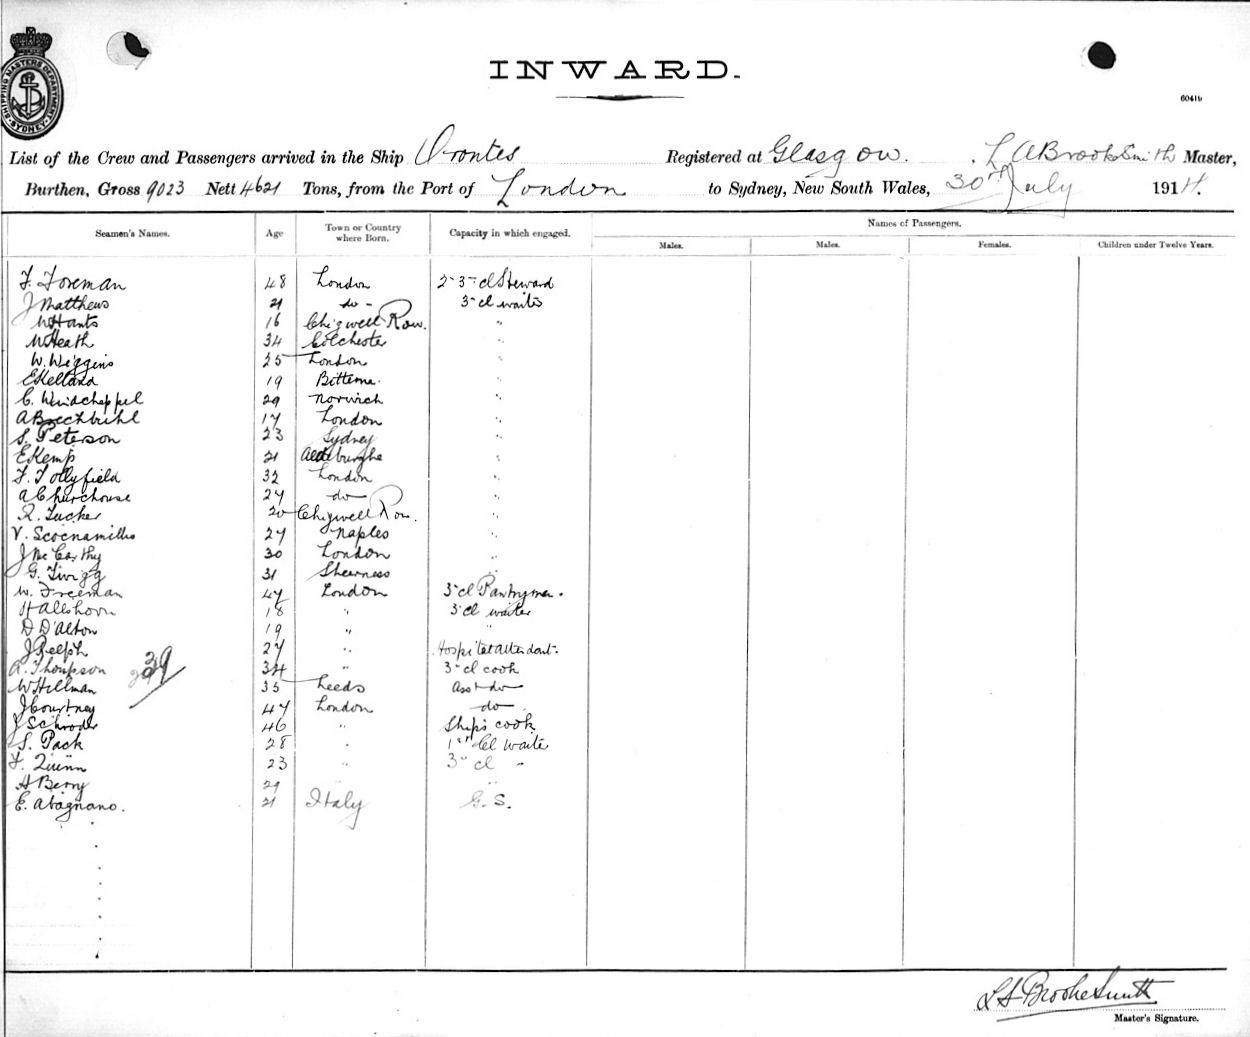 SHIPPING MASTERS DEPARTMENT SYDNEY
INWARD.
60419
List of the Crew and Passengers arrived in the Ship Orontes Registered at Glasgow. L A Brooke Smith Master,
Burthen, Gross 9023 Nett 4621 Tons, from the Port of London to Sydney, New South Wales, 30th July 1914.
Seamen's Names. Age Town or Country where Born. Capacity in which engaged. Names of Passengers.
Males. Males. Females. Children under Twelve Years.
F. Foreman 48 London 2-3rd cl Steward
J Matthews 21 do - 3rd cl waiter
W Hants 16 Chigwell Row. "
W Heath 34 Colchester "
W. Wiggins 25 London "
E Kelland 19 Bitterne. "
C. Windcheppel 29 Norwich "
A Brechbuhl 17 London "
S. Peterson 23 Sydney "
E Kemp 21 Aldeburghe "
F. Tollyfield 32 London "
A Churchouse 27 do "
R. Tucker 20 Chigwell Row. "
V. 27 Naples "
J McCarthy 30 London "
G. Twigg 31 Sheerness "
W. Freeman 47 London 3rd cl Pantryman.
H Allshorn 18 " 3rd cl waiter
D D'Alton 19 " "
J Relph 27 " Hospital attendant.
A. Thompson 34 " 3rd cl cook
W Hillman 35 Leeds Asst do
J Courtney 47 London do
J Schroder 46 " Ship's cook
S. Pack 28 " 1st Cl waiter
F. Quinn 23 " 3rd cl "
A Berry 29 " "
E. Abagnano. 21 Italy G. S.
29
L A Brooke Smith
Master's Signature.